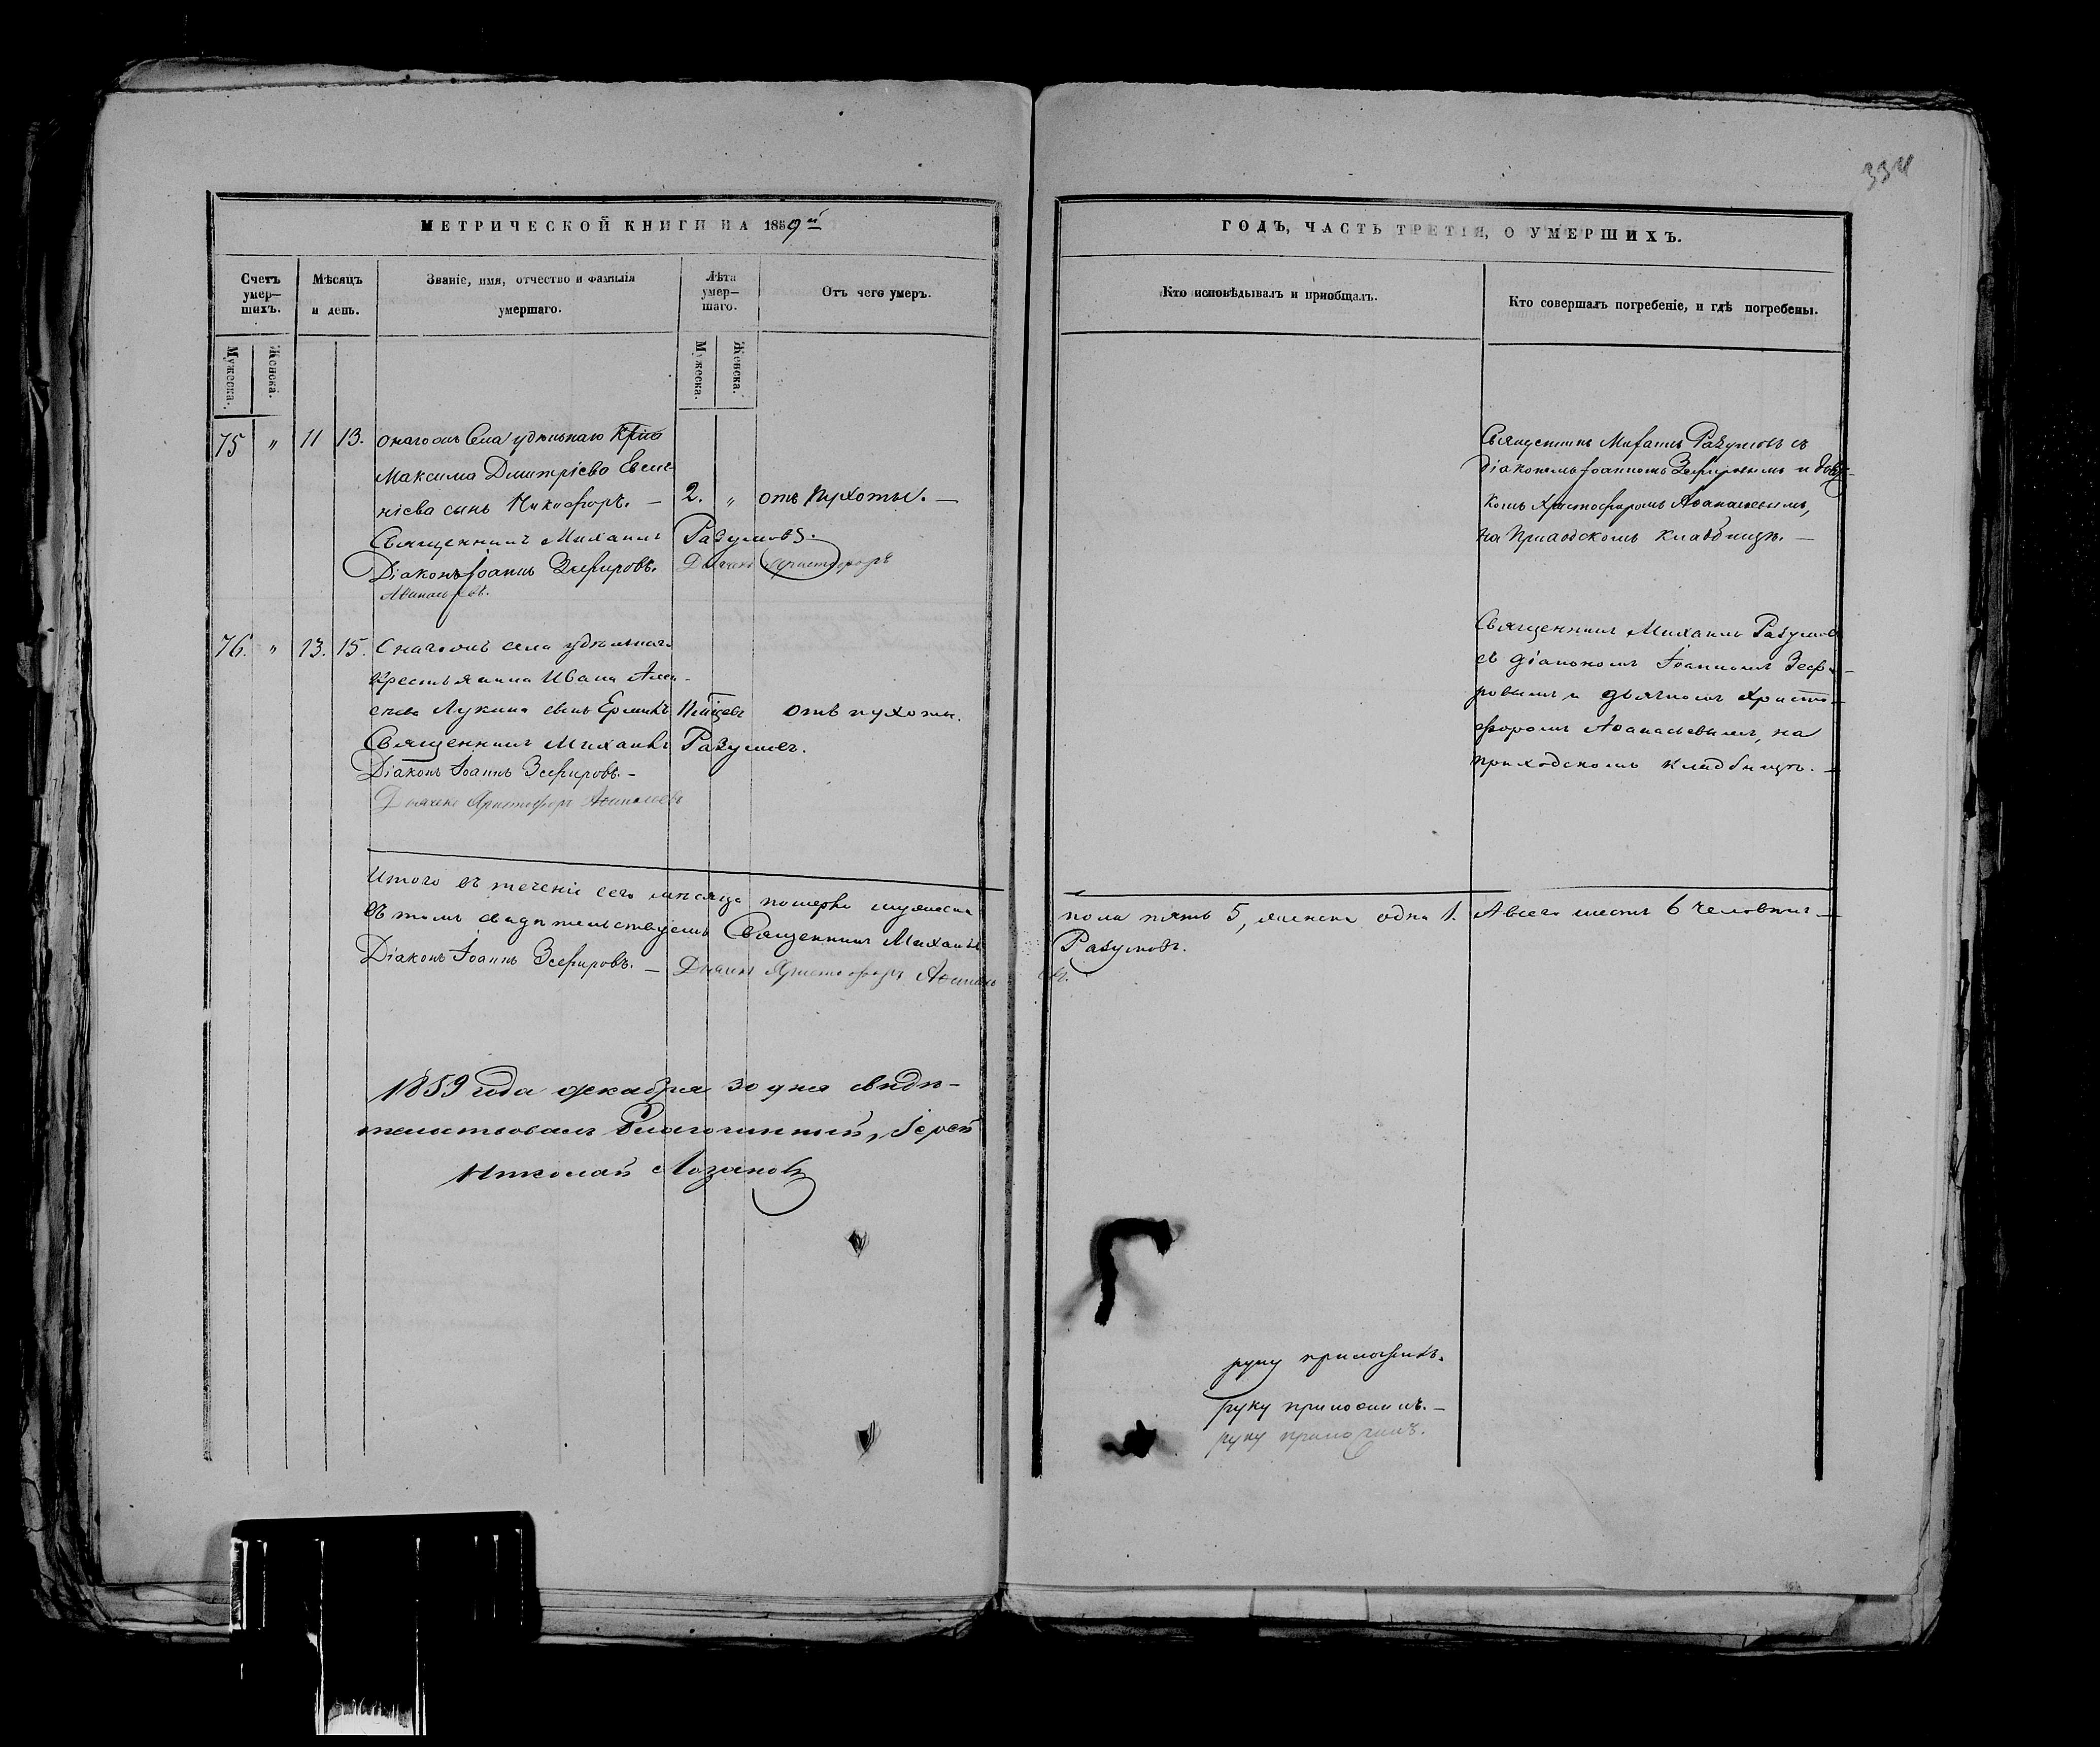 334
МЕТРИЧЕСКОЙ КНИГИ НА 1859й
ГОДЪ, ЧАСТЬ ТРЕТІЯ, О УМЕРШИХЪ.
Счетъ умер-шихъ.
Мѣсяцъ и день.
Званіе, имя, отчество и фамилія умершаго.
Лѣта умер-шаго.
Отъ чего умеръ.
Кто исповѣдывалъ и приобщалъ.
Кто совершалъ погребеніе, и гдѣ погребены.
Мужеска.
Женска.
Мужеска.
Женска.
75 " 11 13. Онагожъ Села удѣльнаго
Максима Дмитріева
сынъ Никифоръ. — 2. " отъ сухоты. —
Священникъ Михаилъ Разумовъ.
Діаконъ Іоаннъ Зефировъ. Дьячекъ Христофоръ
Аѳанасьевъ.
Священникъ Михаилъ Разумовъ съ
діакономъ Іоанномъ Зефировымъ и дьяч-
комъ Христофоромъ Аѳанасьевымъ,
на приходскомъ кладбищѣ. —
76. " 13. 15. Онагожъ села удѣльнаго
крестьянина Ивана
Лукина сынъ отъ сухоты.
Священникъ Михаилъ Разумовъ.
Діаконъ Іоаннъ Зефировъ. —
Дьячекъ Христофоръ Аѳанасьевъ
Священникъ Михаилъ Разумовъ
съ діакономъ Іоанномъ Зефи-
ровымъ и дьячкомъ Христо-
форомъ Аѳанасьевымъ, на
приходскомъ кладбищѣ. —
Итого въ теченіе сего мѣсяца померло мужеска пола пять 5, женска одна 1. А всего шесть 6 человѣкъ —
Въ томъ свидѣтельствуемъ Священникъ Михаилъ Разумовъ.
Діаконъ Іоаннъ Зефировъ. — Дьячекъ Христофоръ Аѳанасьевъ.
1859 года декабря 30 дня свидѣ-
тельствовалъ Благочинный, Іерей
Николай Лозановъ
руку приложилъ.
руку приложилъ. —
руку приложилъ.